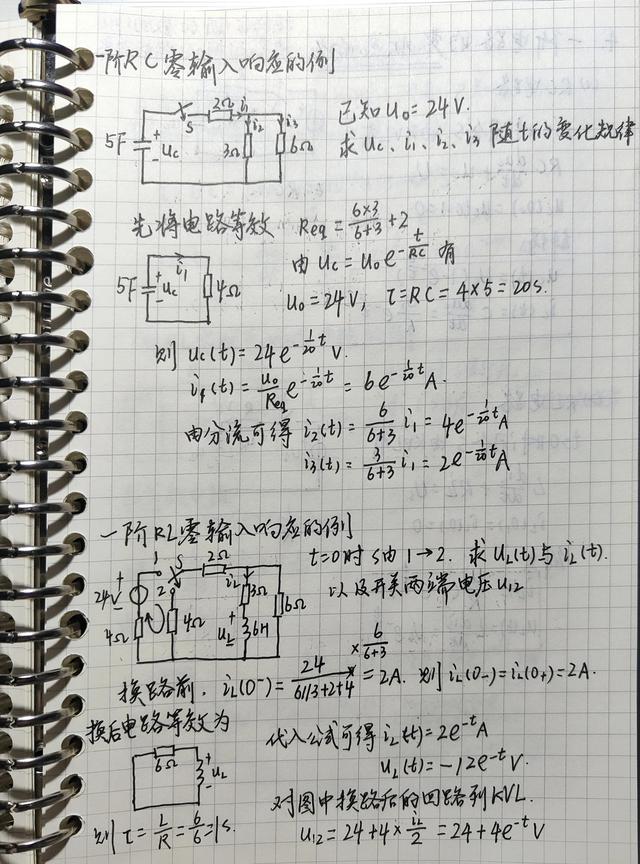 一阶RC零输入响应的例
5F + - Uc S 2Ω i₁ i₂ i₃ 3Ω 6Ω
已知U₀=24V.
求Uc、i₁、i₂、i₃ 随t的变化规律
先将电路等效 Req = \frac{6×3}{6+3}+2
5F + - Uc i₁ 4Ω
由Uc=U₀e^{-\frac{t}{RC}} 有
U₀=24V, τ=RC=4×5=20s.
则 Uc(t)=24e^{-\frac{1}{20}t}V.
i₁(t)=\frac{U₀}{Req}e^{-\frac{1}{20}t}=6e^{-\frac{1}{20}t}A.
由分流可得 i₂(t)=\frac{6}{6+3}i₁=4e^{-\frac{1}{20}t}A
i₃(t)=\frac{3}{6+3}i₁=2e^{-\frac{1}{20}t}A
一阶RL零输入响应的例
24V + - 4Ω 1 S 2 4Ω 2Ω i_L 3Ω + U_L - 6H 6Ω
t=0时S由1→2. 求U_L(t)与i_L(t).
以及开关两端电压U₁₂
换路前, i_L(0-)=\frac{24}{6//3+2+4}×\frac{6}{6+3}=2A. 则i_L(0-)=i_L(0+)=2A.
换后电路等效为
6Ω + U_L -
代入公式可得 i_L(t)=2e^{-t}A
U_L(t)=-12e^{-t}V.
对图中换路后的回路列KVL.
则τ=\frac{L}{R}=\frac{6}{6}=1s.
U₁₂=24+4×\frac{i_L}{2}=24+4e^{-t}V